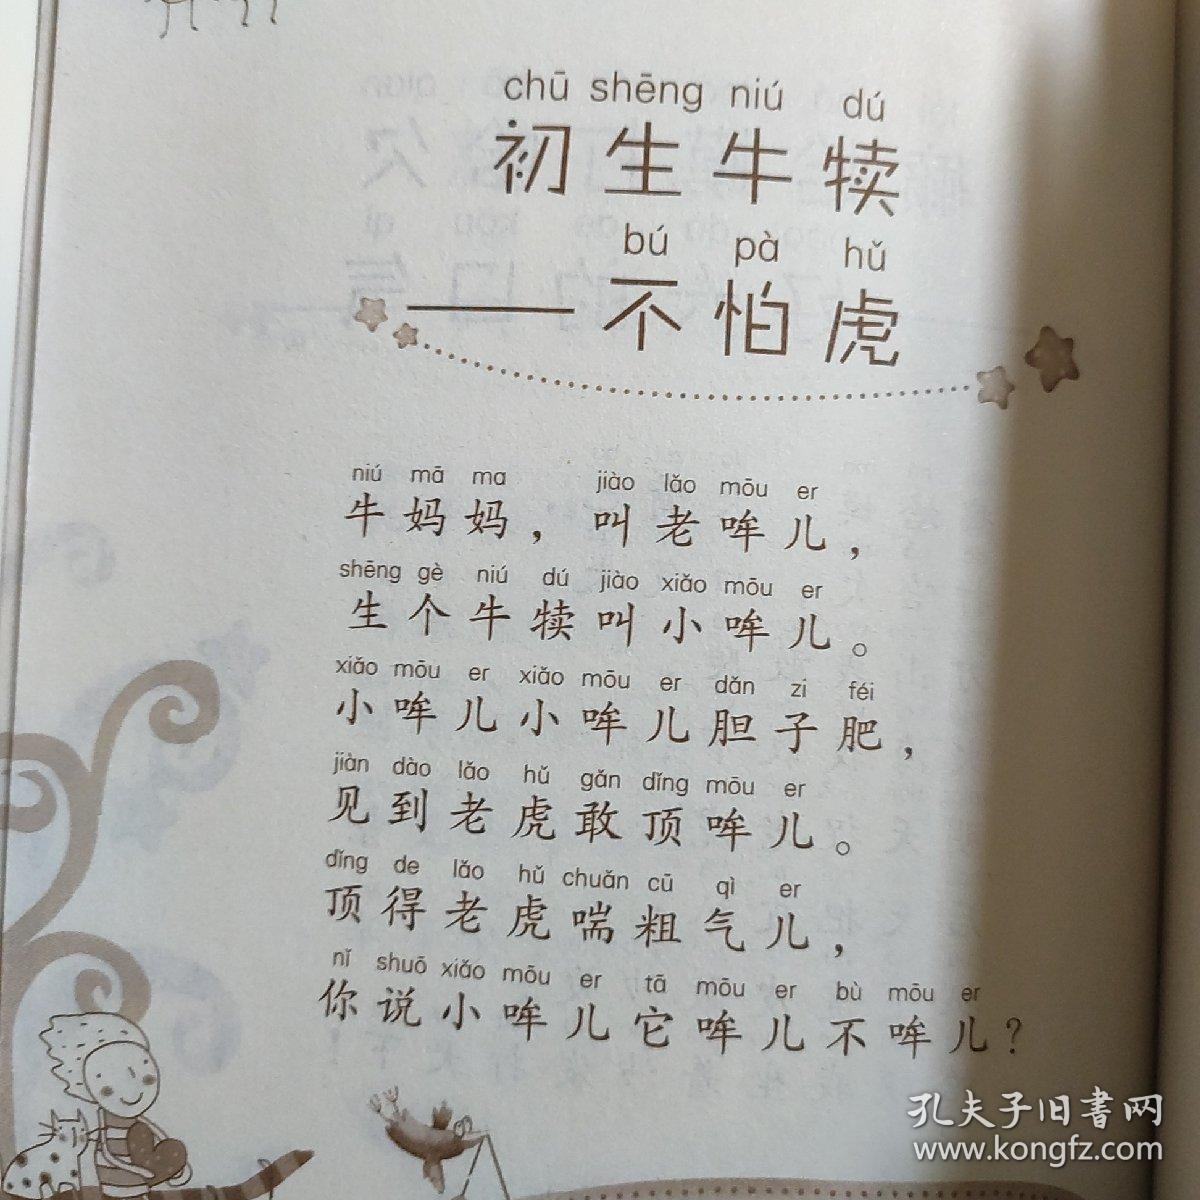 chū shēng niú dú
初生牛犊
bú pà hǔ
——不怕虎
niú mā ma jiào lǎo mōu er
牛妈妈，叫老哞儿，
shēng gè niú dú jiào xiǎo mōu er
生个牛犊叫小哞儿。
xiǎo mōu er xiǎo mōu er dǎn zi féi
小哞儿小哞儿胆子肥，
jiàn dào lǎo hǔ gǎn dǐng mōu er
见到老虎敢顶哞儿。
dǐng de lǎo hǔ chuǎn cū qì er
顶得老虎喘粗气儿，
nǐ shuō xiǎo mōu er tā mōu er bù mōu er
你说小哞儿它哞儿不哞儿？
孔夫子旧書网
www.kongfz.com